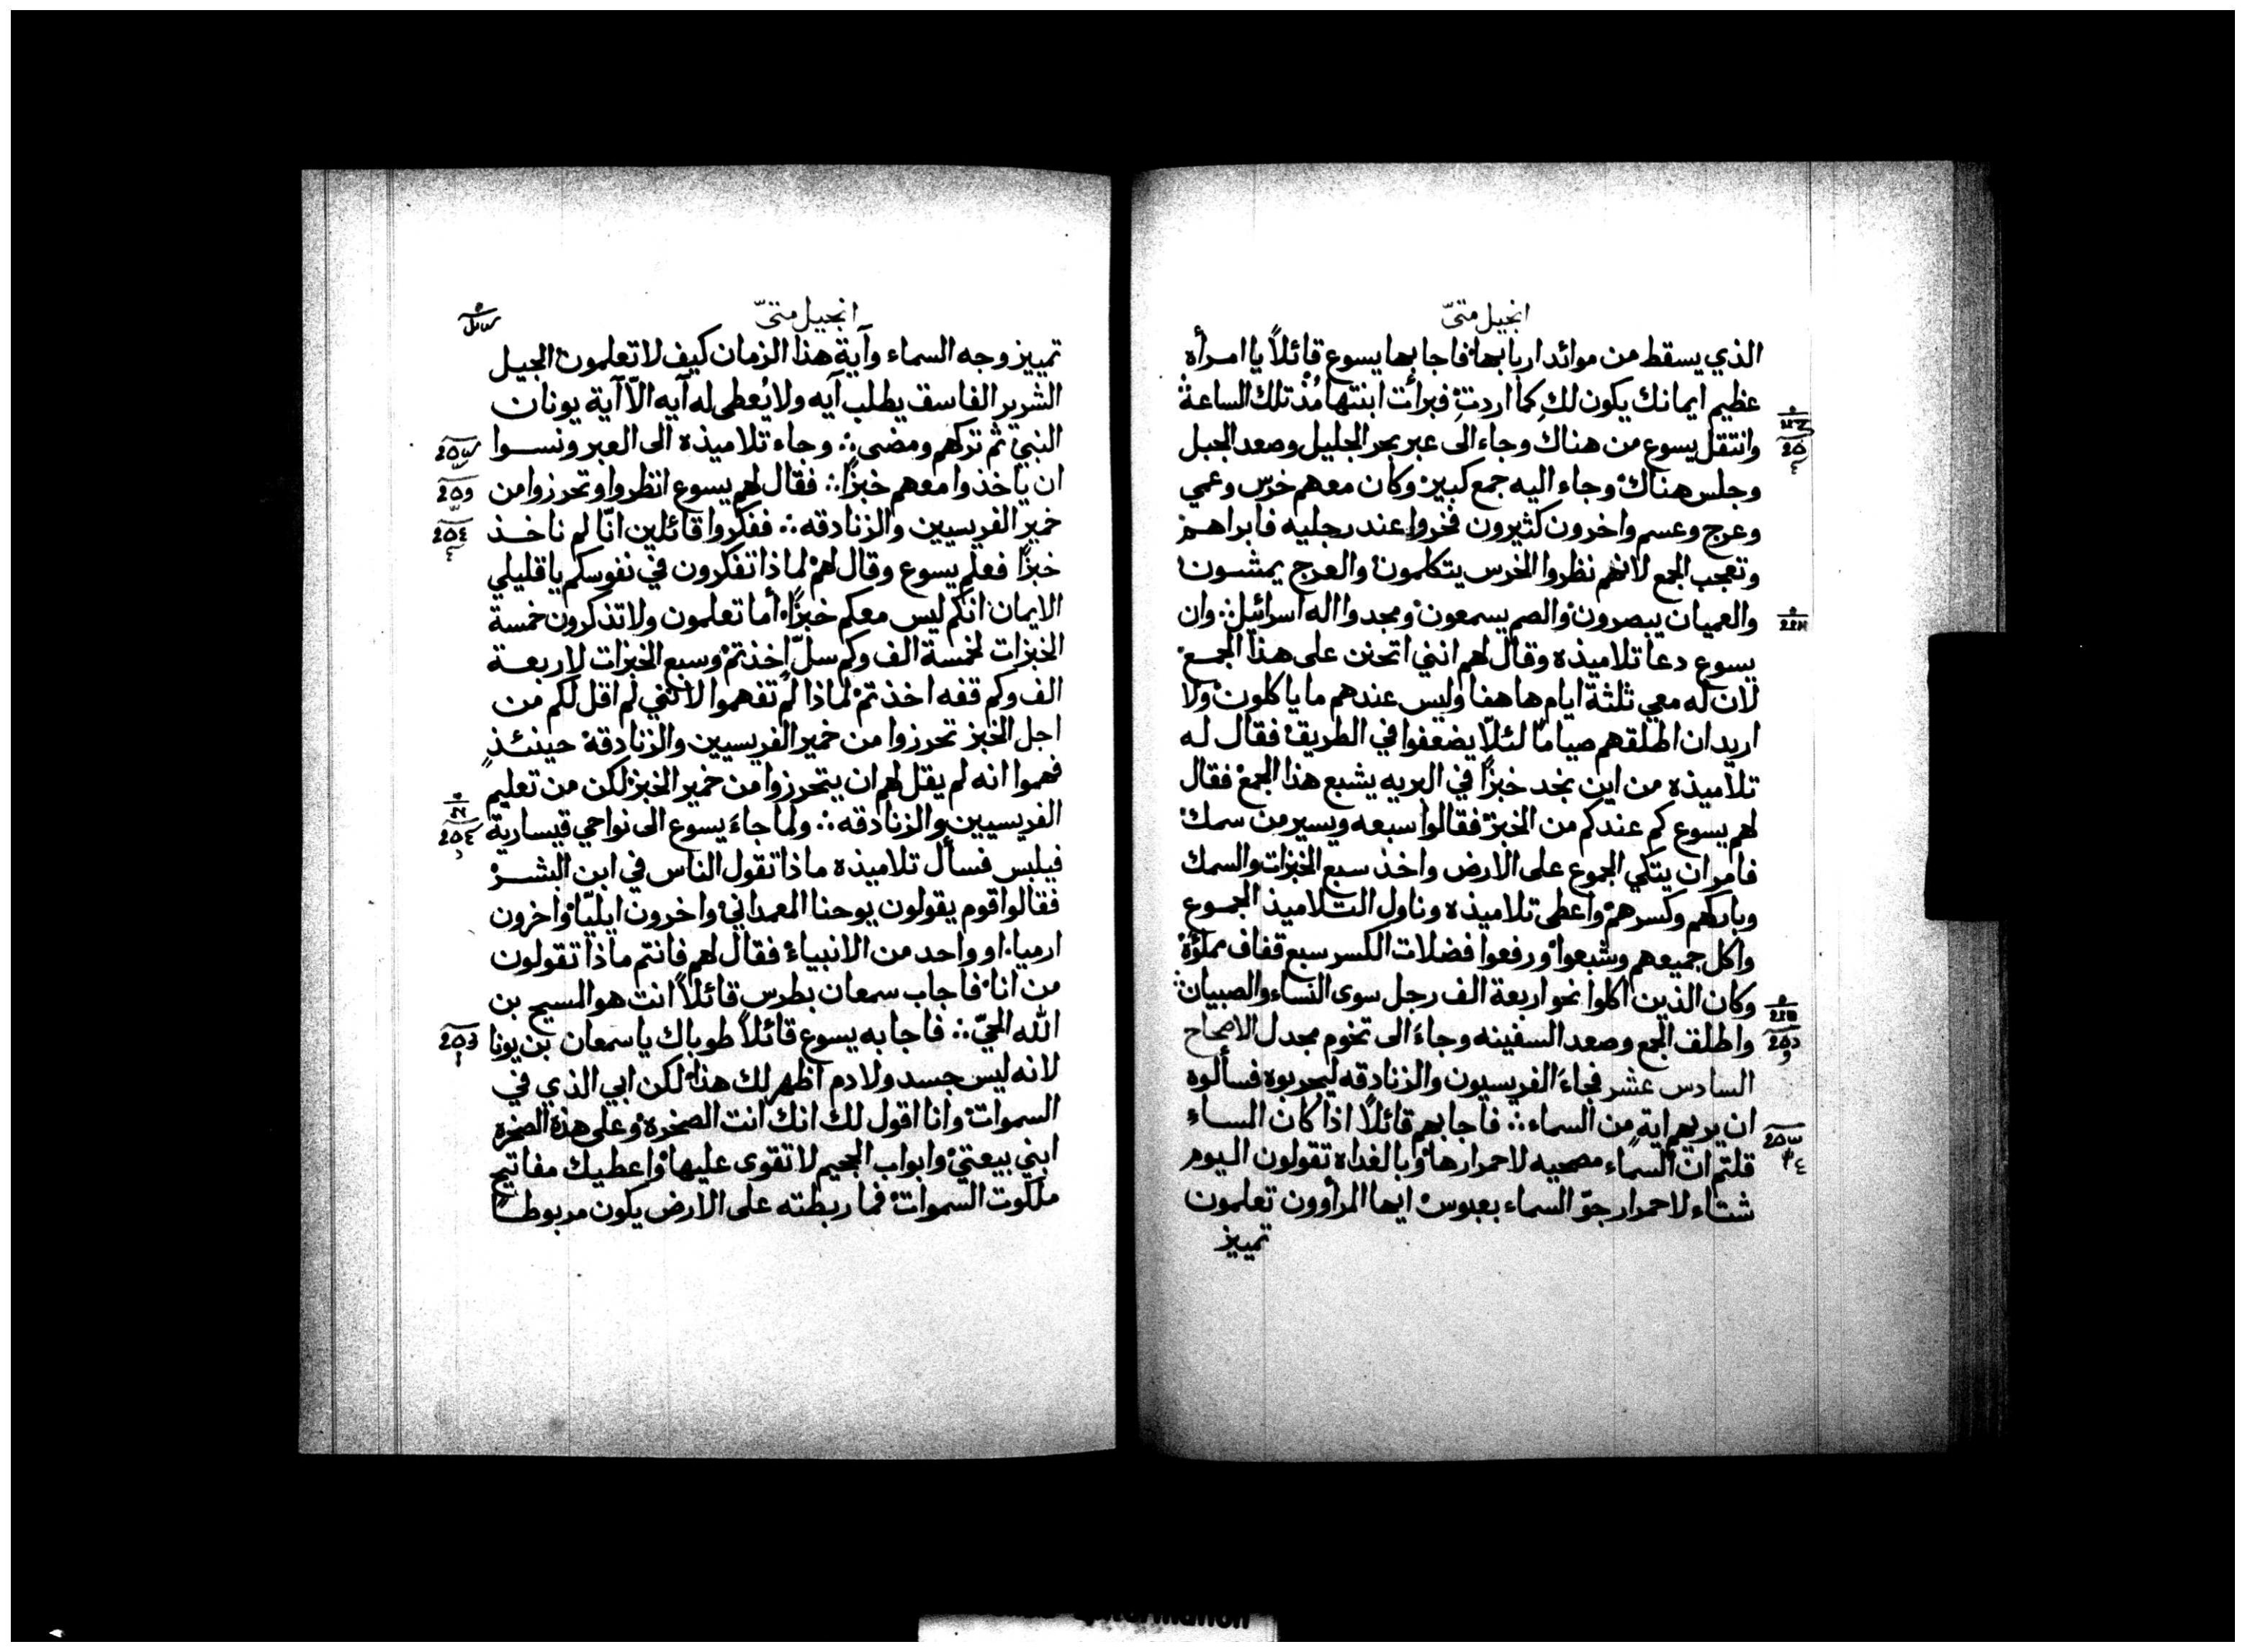 انجيل متىّ
الذي يسقط من موائد اربابها فاجابها يسوع قائلاً يا امراه
عظيم ايمانك يكون لكِ كما اردتِ فبرأت ابنتها مُذ تلك الساعة
وانتقل يسوع من هناك وجاء الى عبر بحر الجليل وصعد الجبل
وجلس هناك وجاء اليه جمع كبير وكان معهم خرس وعمي
وعرج وعسم واخرون كثيرون فخروا عند رجليه فابراهم
وتعجب الجمع لانهم نظروا الخرس يتكلمون والعرج يمشون
والعميان يبصرون والصم يسمعون ومجدوا اله اسرائيل وان
يسوع دعا تلاميذه وقال لهم انني اتحنن على هذا الجمع
لان له معي ثلثة ايام هاهنا وليس عندهم ما ياكلون ولا
اريد ان اطلقهم صياماً لئلّا يضعفوا في الطريق فقال له
تلاميذه من اين نجد خبزاً في البريه يشبع هذا الجمع فقال
لهم يسوع كم عندكم من الخبز فقالوا سبعه ويسير من سمك
فامر ان يتكي الجموع على الارض واخذ سبع الخبزات والسمك
وباركهم وكسرهم واعطى تلاميذه وناول التلاميذ الجموع
واكل جميعهم وشبعوا ورفعوا فضلات الكسر سبع قفاف مملؤة
وكان الذين اكلوا نحو اربعة الف رجل سوى النساء والصبيان
واطلق الجمع وصعد السفينه وجاءَ الى تخوم مجدل الاصحاح
السادس عشر فجاءَ الفريسيون والزنادقه ليجربوه فسألوه
ان يريهم اية من السماء ∴ فاجابهم قائلاً اذا كان المساء
قلتم ان السماء مصحيه لاحمرارها وبالغداه تقولون اليوم
شتاء لاحمرار جوّ السماء بعبوس ايها المرأوون تعلمون
تمييز
انجيل متىّ
تمييز وجه السماء وآية هذا الزمان كيف لا تعلمون الجيل
الشرير الفاسق يطلب آيه ولا يُعطى له آيه الّا آية يونان
النبي ثم تركهم ومضى ∴ وجاء تلاميذه الى العبر ونسوا
ان ياخذوا معهم خبزاً ∴ فقال لهم يسوع انظروا وتحرزوا من
خمير الفريسيين والزنادقه ∴ ففكروا قائلين انّا لم ناخذ
خبزاً فعلم يسوع وقال لهم لماذا تفكرون في نفوسكم يا قليلي
الايمان انكم ليس معكم خبزاً أما تعلمون ولا تذكرون خمسة
الخبزات لخمسة الف وكم سلّ اخذتم وسبع الخبزات لاربعة
الف وكم قفه اخذتم لماذا لم تفهموا لانني لم اقل لكم من
اجل الخبز تحرزوا من خمير الفريسيين والزنادقة حينئذٍ
فهموا انه لم يقل لهم ان يتحرزوا من خمير الخبز لكن من تعليم
الفريسيين والزنادقه ∴ ولما جاءَ يسوع الى نواحي قيسارية
فيلبس فسأل تلاميذه ماذا تقول الناس في ابن البشر
فقالوا قوم يقولون يوحنا المعمداني واخرون ايليّا واخرون
ارميا او واحد من الانبياء فقال لهم فانتم ماذا تقولون
من انا فاجاب سمعان بطرس قائلاً انت هو المسيح بن
الله الحيّ ∴ فاجابه يسوع قائلاً طوباك يا سمعان بن يونا
لانه ليس جسد ولا دم اظهر لك هذا لكن ابي الذي في
السموات وانا اقول لك انك انت الصخره وعلى هذه الصخره
ابني بيعتي وابواب الجحيم لا تقوى عليها واعطيك مفاتيح
ملكوت السموات فما ربطته على الارض يكون مربوطاً